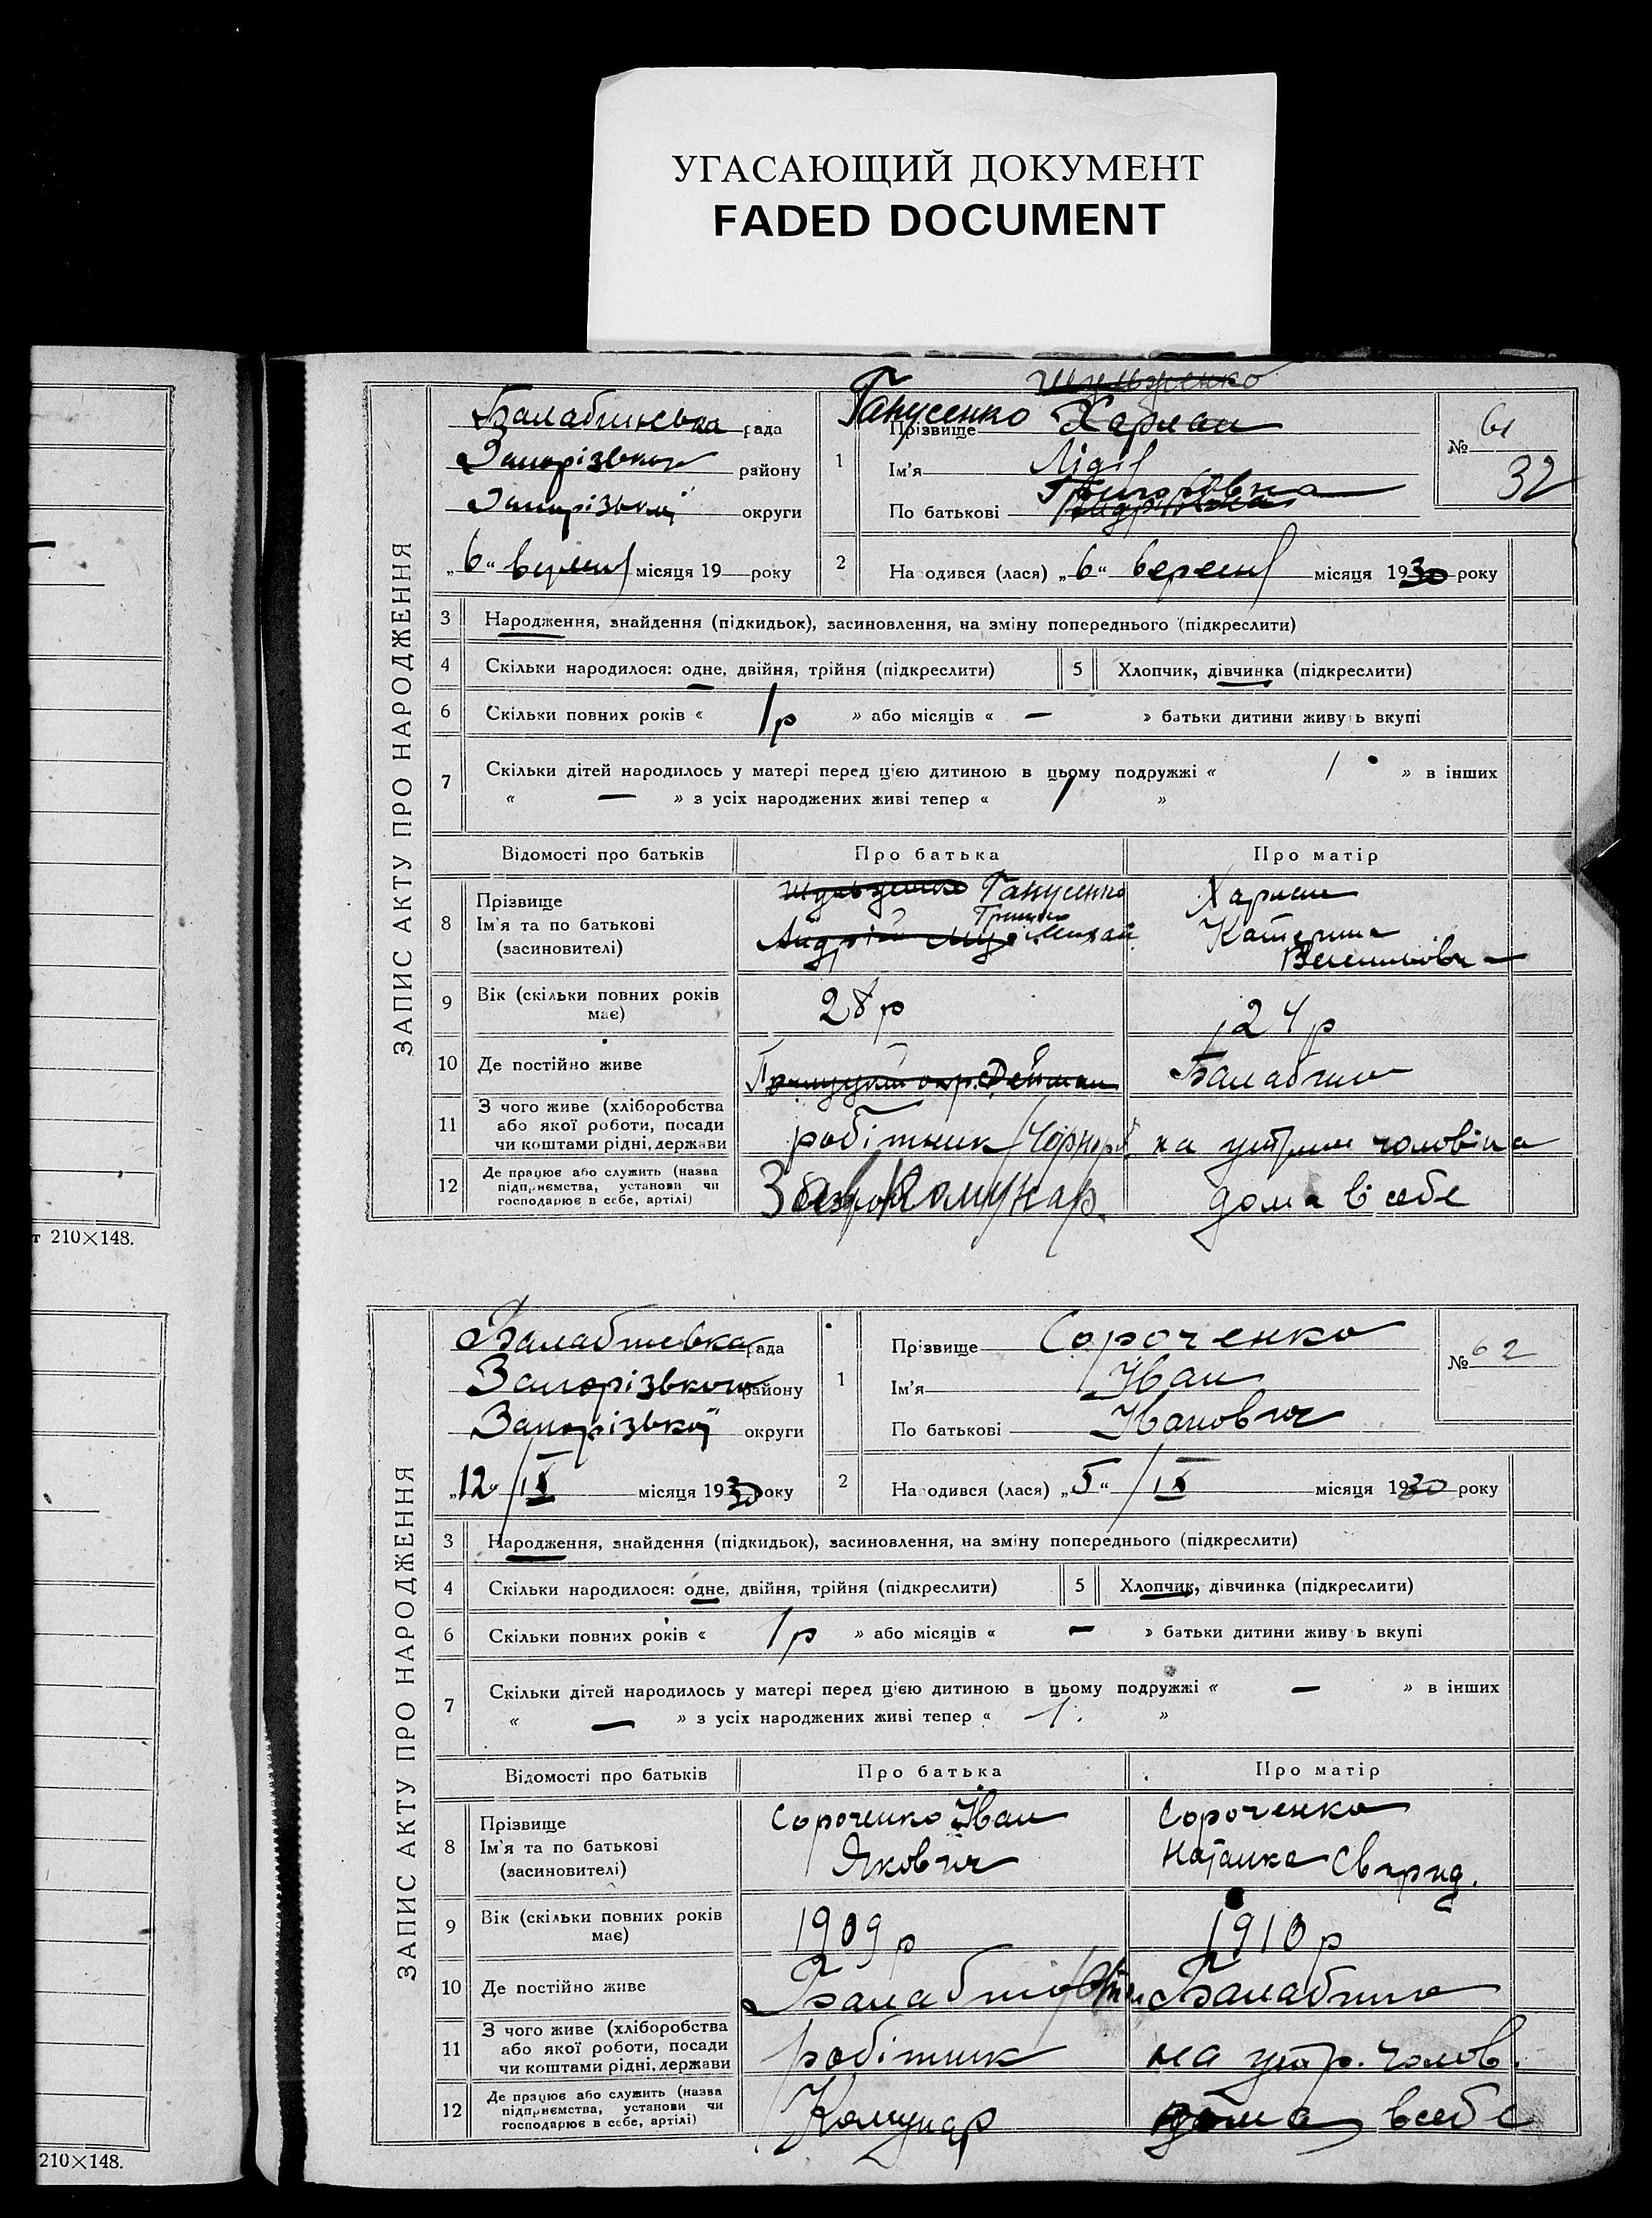 УГАСАЮЩИЙ ДОКУМЕНТ
FADED DOCUMENT
т 210×148.
210×148.
ЗАПИС АКТУ ПРО НАРОДЖЕННЯ
Шульженко
Балабинська рада
Запорізького району
Запорізької округи
„6“ вересня місяця 19 року
1
Ганусенко
Прізвище Харлан
Ім'я Лідія
По батькові Григоровна
№ 61
32
2 Народився (лася) „6“ вересня місяця 1930 року
3 Народження, знайдення (підкидьок), засиновлення, на зміну попереднього (підкреслити)
4 Скільки народилося: одне, двійня, трійня (підкреслити) 5 Хлопчик, дівчинка (підкреслити)
6 Скільки повних років « 1р » або місяців « — » батьки дитини живуть вкупі
7 Скільки дітей народилось у матері перед цією дитиною в цьому подружжі « 1 » в інших
« — » з усіх народжених живі тепер « 1 »
Відомості про батьків Про батька Про матір
8 Прізвище
Ім'я та по батькові
(засновителі)
Шульженко Ганусенко
Андрій
Харлан
Катерина
9 Вік (скільки повних років має) 28 р 24 р
10 Де постійно живе Балабино
11 З чого живе (хліборобства або якої роботи, посади чи коштами рідні, держави робітник на утрим чоловіка
12 Де працює або служить (назва підприємства, установи чи господарює в себе, артілі) Комунар. дома в себе
ЗАПИС АКТУ ПРО НАРОДЖЕННЯ
Балабинська рада
Запорізького району
Запорізької округи
„12“ /ІХ місяця 1930 року
1 Прізвище Сороченко
Ім'я Іван
По батькові Іванович
№ 62
2 Народився (лася) „5“ /ІХ місяця 1930 року
3 Народження, знайдення (підкидьок), засиновлення, на зміну попереднього (підкреслити)
4 Скільки народилося: одне, двійня, трійня (підкреслити) 5 Хлопчик, дівчинка (підкреслити)
6 Скільки повних років « 1р » або місяців « — » батьки дитини живуть вкупі
7 Скільки дітей народилось у матері перед цією дитиною в цьому подружжі « — » в інших
« — » з усіх народжених живі тепер « 1. »
Відомості про батьків Про батька Про матір
8 Прізвище
Ім'я та по батькові
(засиновителі)
Сороченко Іван
Якович
Сороченко
Наталка Свирид.
9 Вік (скільки повних років має) 1909 р 1910 р
10 Де постійно живе Балабино Балабино
11 З чого живе (хліборобства або якої роботи, посади чи коштами рідні, держави робітник на утр. чолов.
12 Де працює або служить (назва підприємства, установи чи господарює в себе, артілі) Комунар дома в себе